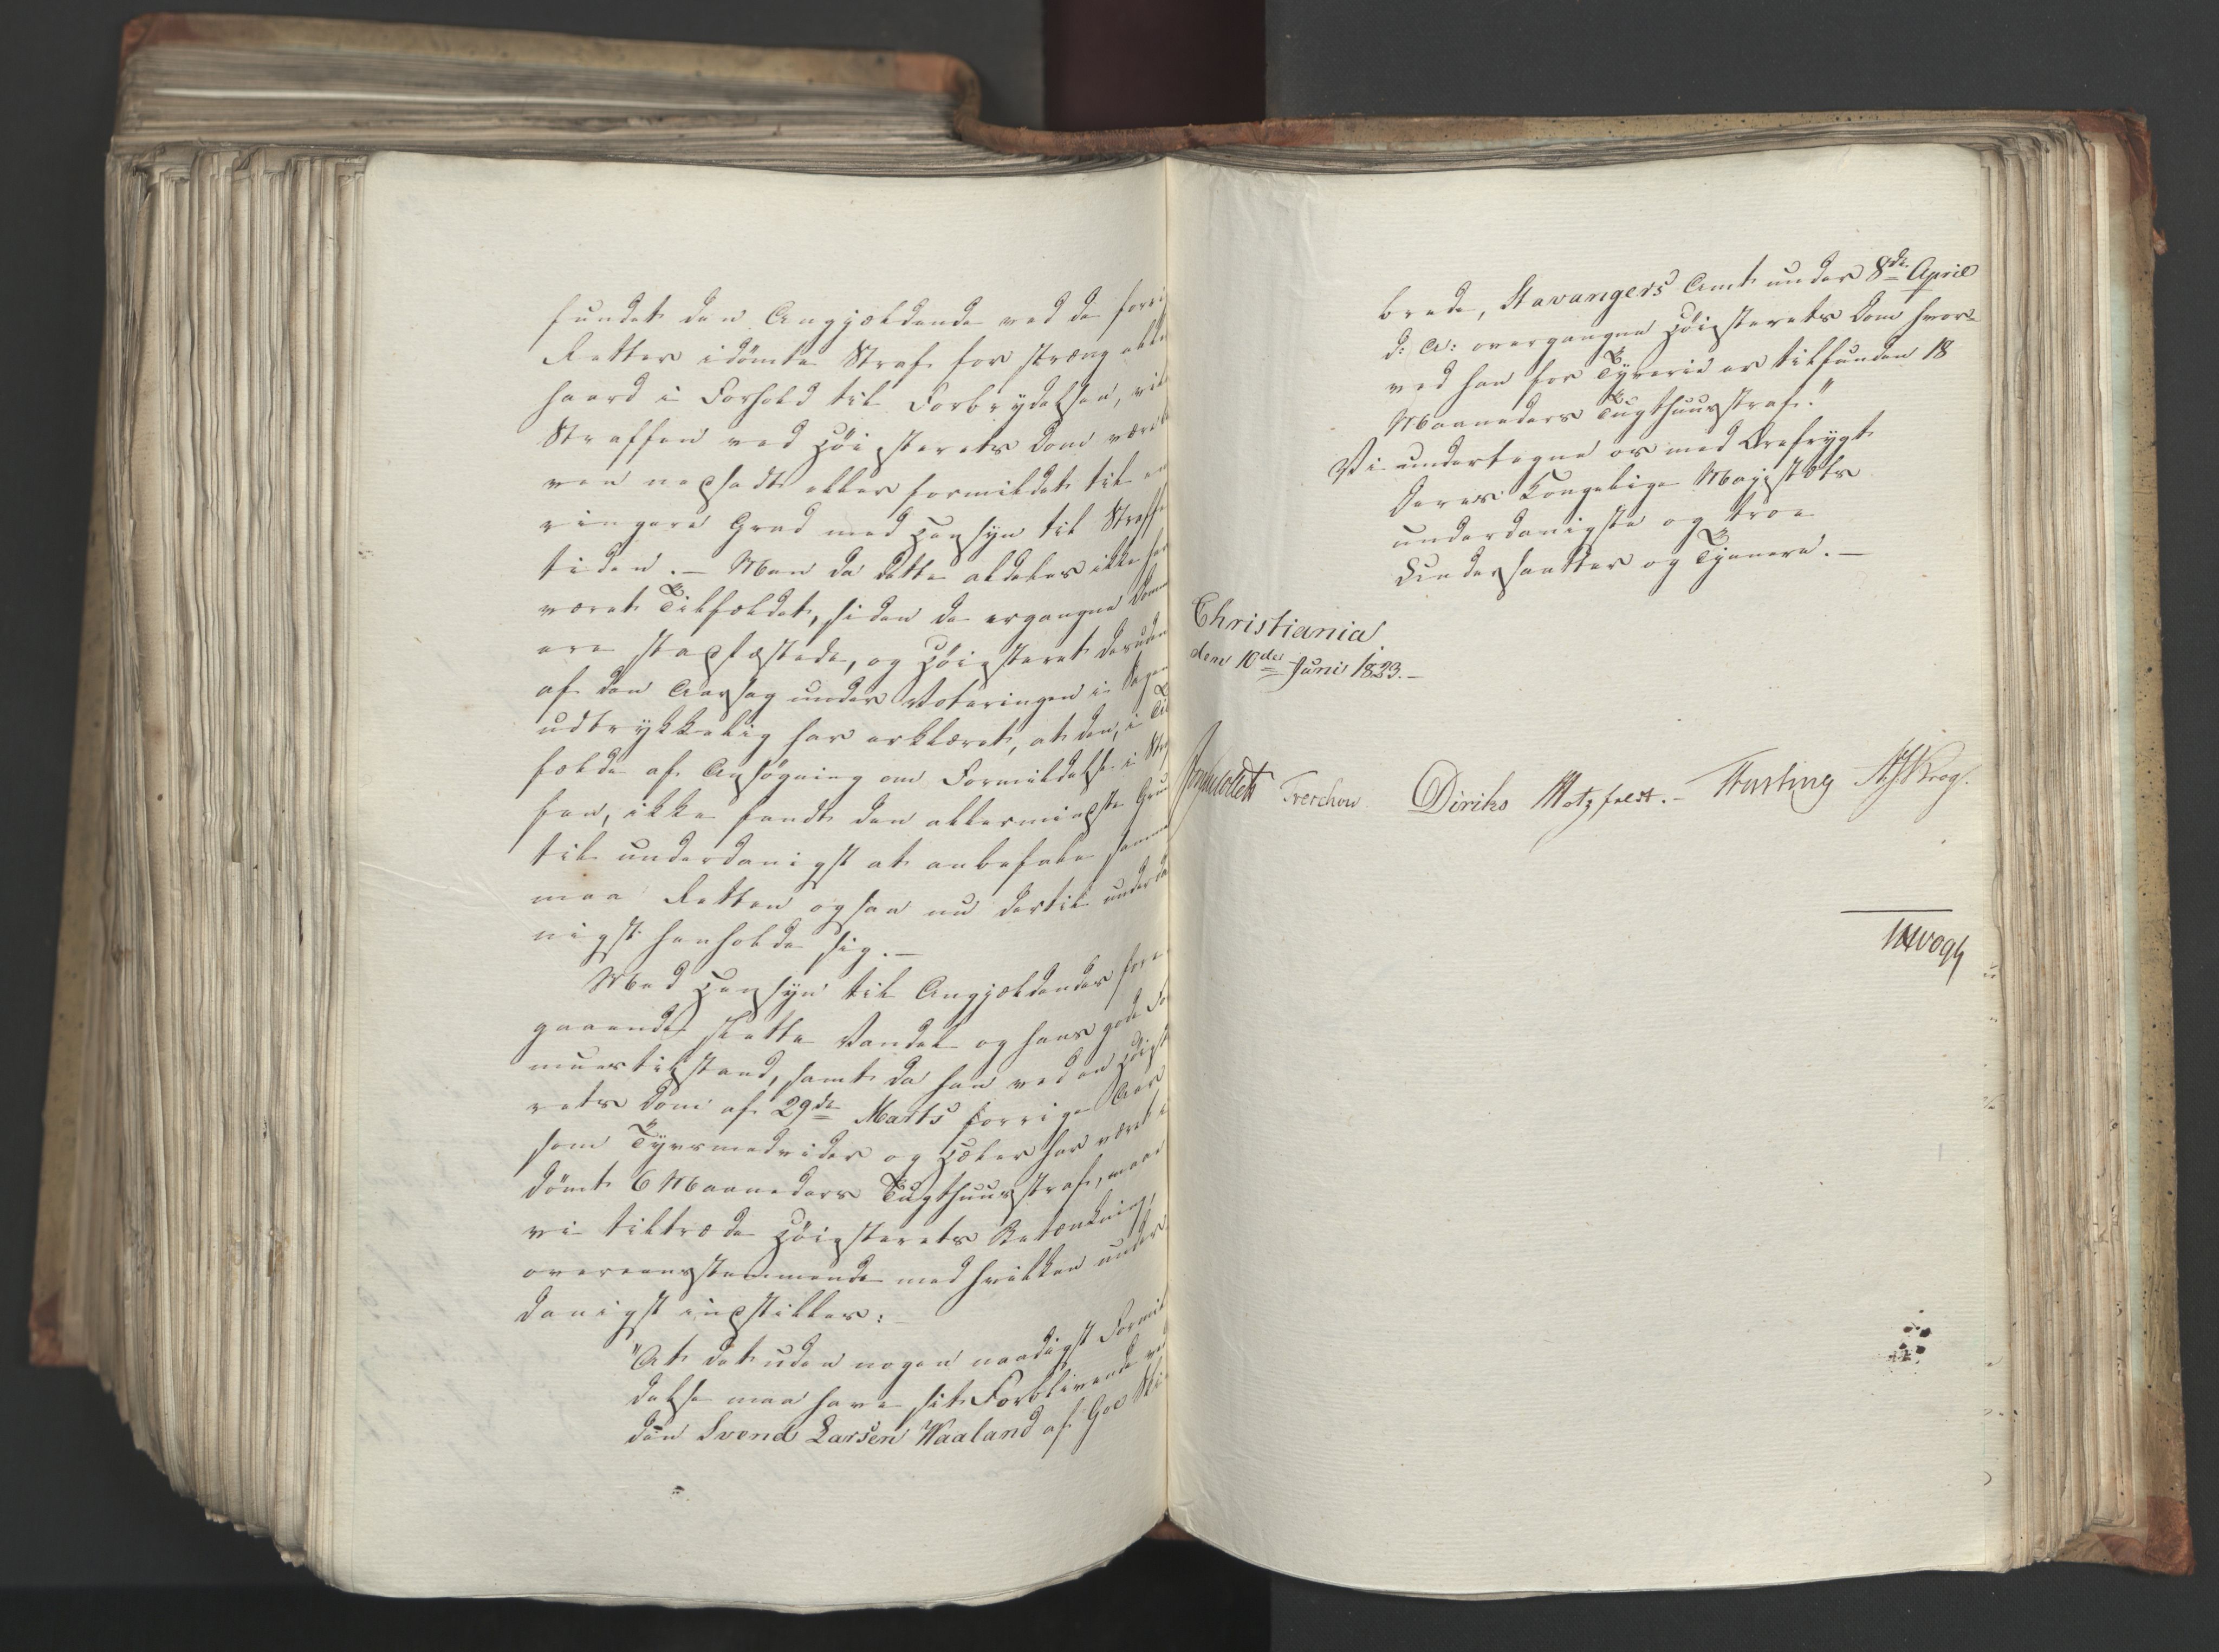 fundet den Angjældende ved de forri
Retter idømte Straf for streng elle
haard i Forhold til Forbrydelsen, vil
Straffen ved Høiesterets Dom være b
ven nedsadt eller formildet til en
ringere Grad med Hensyn til Straffe
tiden. – Men da dette aldeles ikke har
været Tilfældet, siden de ergangne Domm
ere stadfæstede, og Høiesteret desuden
af den Aarsag under Voteringen i Sagen
udtrykkelig har erklæret, at den, i Til
fælde af Ansøgning om Formildelse i Straf
fen, ikke fandt den allermindste Grund
til underdanigst at anbefale samme
maa Retten ogsaa nu dertil underda
nigst henholde sig. –
Med Hensyn til Angjældendes fore
gaaende slette Vandel og hans gode Fo
muestilstand, samt da han ved en Høieste
rets Dom af 29de Marts forrige Aar
som Tyvsmedvider og Hæler har været i
dømt 6 Maaneders Tugthuusstraf, maae
vi tiltræde Høiesterets Betænkning,
overeensstemmende med hvilken under
danigst indstilles:
"At det uden nogen naadigst Formil
delse maa have sit Forblivende ved
den Svend Larsen Waaland af Goe Sti
brede, Stavangers Amt under 8de April
d: A: overgangne Høiesterets Dom hvor
ved han for Tyverie er tilfunden 18
Maaneders Tugthuusstraf."
Vi undertegne os med Ærefrygt
Deres Kongelige Majestæts
underdanigste og troe
Undersaatter og Tjenere. –
Christiania
den 10de Juni 1823. –
Treschow Diriks Motzfeldt. – Krog.
Vogt